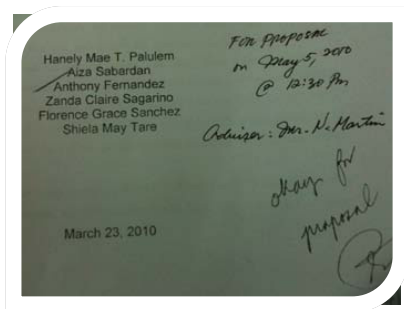 Hanely Mae T. Palulem
Aiza Sabardan
Anthony Fernandez
Zanda Claire Sagarino
Florence Grace Sanchez
Shiela May Tare
March 23, 2010
FOR PROPOSAL
on May 5, 2010
@ 12:30 Pm
Adviser: N. Martin
okay for
proposal